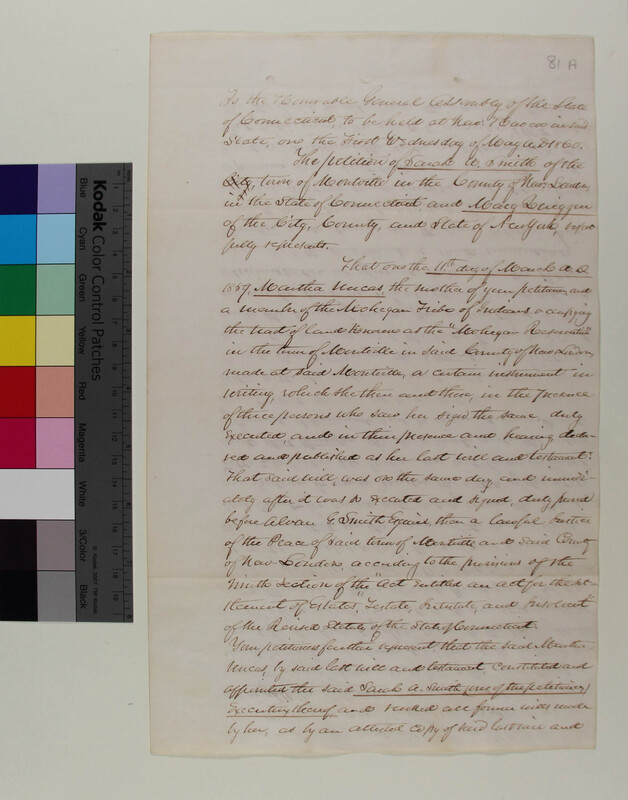 81 A
To the Honorable General Assembly of the State
of Connecticut, to be held at New Haven in said
State, on the First Wednesday of May A.D. 1860.
The petition of Sarah A. Smith of the
City, town of Montville in the County of New London
in the State of Connecticut and Mary
of the City, County, and State of New York, respect
fully represents.
That on the 11th day of March A.D.
1859, Martha Uncas the mother of your petitioners and
a member of the Mohegan Tribe of Indians occupying
the tract of land known as the "Mohegan Reservation"
in the town of Montville in said County of New London,
made at said Montville, a certain instrument in
writing, which she then and there, in the presence
of three persons who saw her sign the same, duly
executed, and in their presence and hearing decla-
red and published as her last will and testament:
That said will, was on the same day and immedi-
ately after it was so executed and signed, duly proved
before Alvan G. Smith Esquire, then a lawful Justice
of the Peace of said town of Montville and said County
of New London, according to the provisions of the
Ninth Section of the "Act entitled an act for the set-
tlement of Estates, Testate, Intestate, and Insolvent"
of the Revised Statutes of the State of Connecticut.
Your petitioners further represent that the said Martha
Uncas, by said last will and testament, constituted and
appointed the said Sarah A. Smith (one of the petitioners)
Executrix thereof and revoked all former wills made
by her, as by an attested copy of said last will and
Kodak Color Control Patches
Blue
Cyan
Green
Yellow
Red
Magenta
White
3/Color
Black
© Kodak, 2007 TM: Kodak